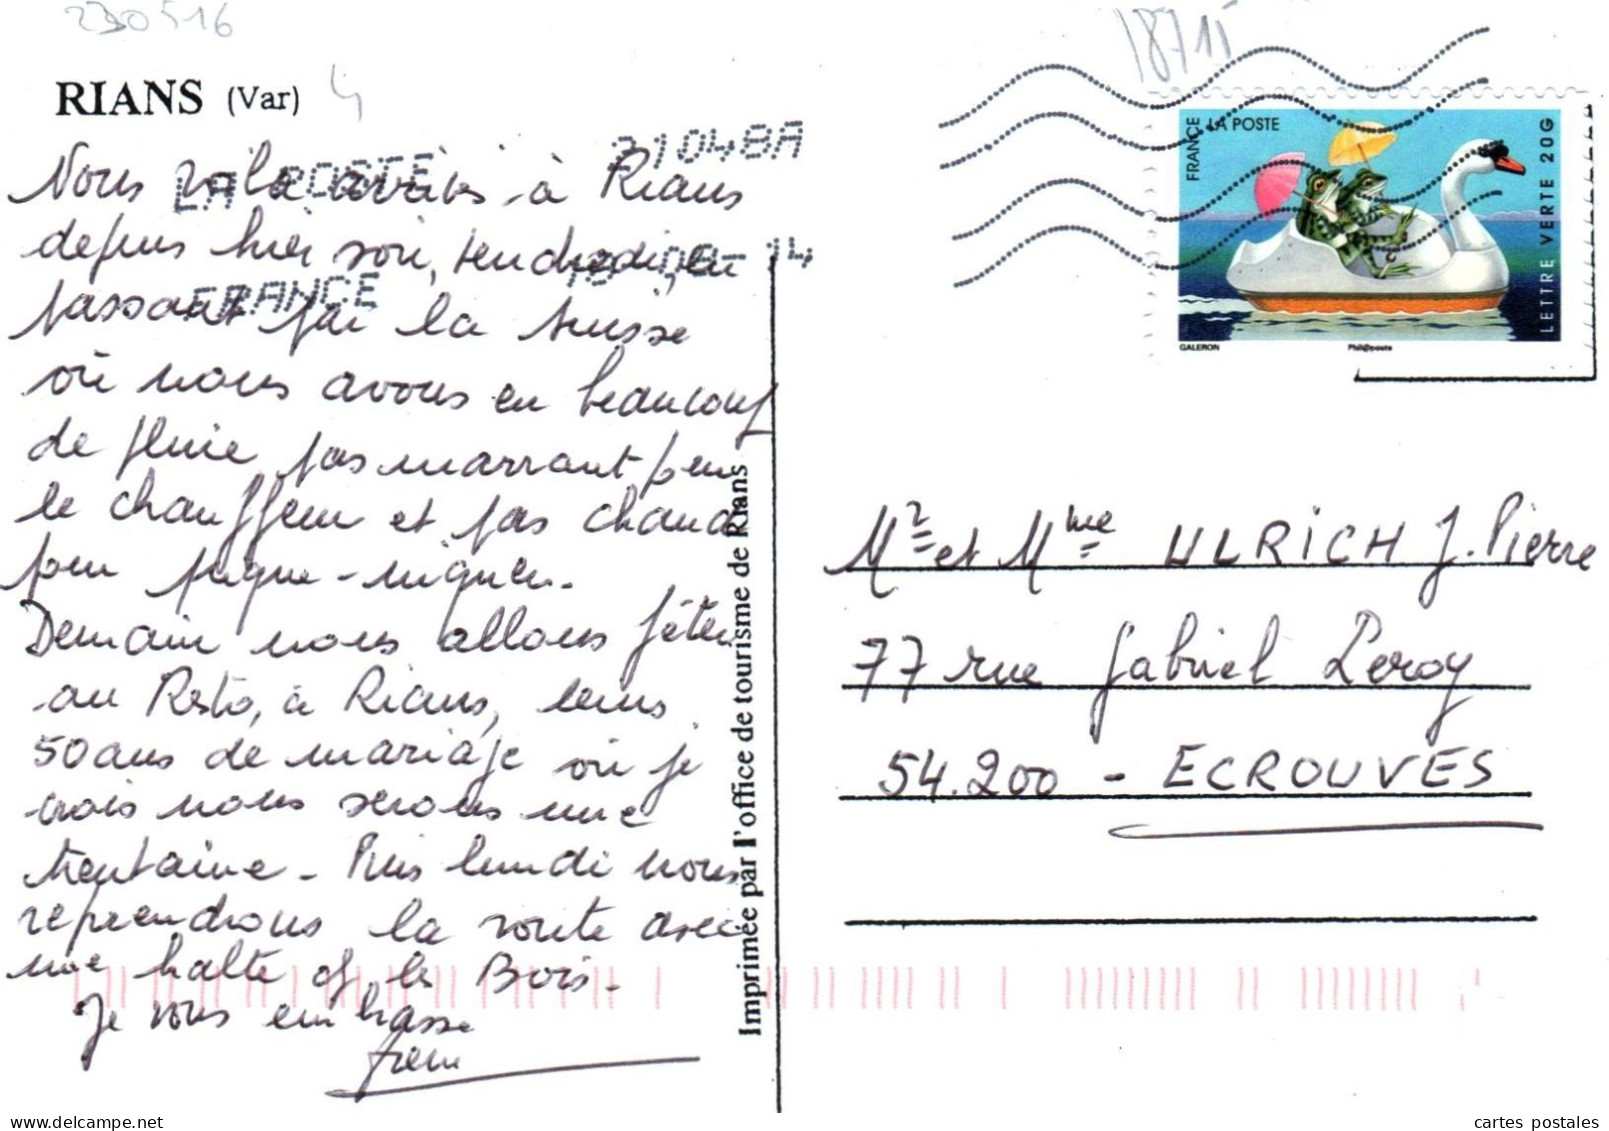 230516
RIANS (Var) 4
Nous voilà arrivés à Rians
depuis hier soir, vendredi, en
passant par la Suisse
où nous avons eu beaucoup
de pluie, pas marrant pour
le chauffeur et pas chaud
pour pique-niquer.
Demain nous allons fêter
au Resto, à Rians, leurs
50 ans de mariage où je
crois nous serons une
trentaine - Puis lundi nous
reprendrons la route avec
une halte
Bois.
Je vous embrasse
LA POSTE
31048A
-14
FRANCE
Imprimée par l'office de tourisme de Rians
18715
FRANCE
LA POSTE
LETTRE VERTE 20G
GALERON
Phil@poste
Mr et Mme ULRICH J. Pierre
77 rue Gabriel Leroy
54.200 - ECROUVES
delcampe.net
cartes postales